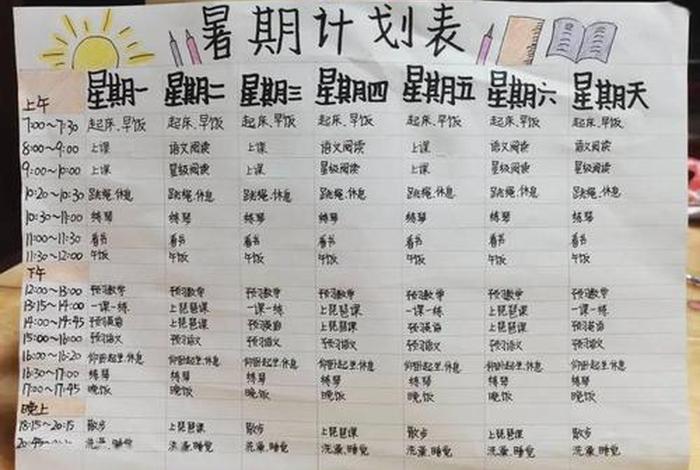 暑期计划表
上午 星期一 星期二 星期三 星期四 星期五 星期六 星期天
7:00~7:30 起床、早饭 起床、早饭 起床、早饭 起床、早饭 起床、早饭 起床、早饭 起床、早饭
8:00~9:00 上课 语文阅读 上课 语文阅读 上课 语文阅读 语文阅读
9:00~10:00 上课 星级阅读 上课 星级阅读 上课 星级阅读 星级阅读
10:20~10:30 跳绳、休息 跳绳、休息 跳绳、休息 跳绳、休息 跳绳、休息 跳绳、休息 跳绳、休息
10:30~11:00 练琴 练琴 练琴 练琴 练琴 练琴 练琴
11:00~11:30 看书 看书 看书 看书 看书 看书 看书
11:30~12:00 午饭 午饭 午饭 午饭 午饭 午饭 午饭
下午
12:00~13:00 预习数学 预习数学 预习数学 预习数学 预习数学 预习数学 预习数学
13:15~14:00 一课一练 上琵琶课 一课一练 上琵琶课 一课一练 上琵琶课 一课一练
14:00~14:45 预习英语 上琵琶课 预习英语 上琵琶课 预习英语 上琵琶课 预习英语
15:00~16:00 预习语文 预习语文 预习语文 预习语文 预习语文 预习语文 预习语文
16:00~16:20 仰卧起坐、休息 仰卧起坐、休息 仰卧起坐、休息 仰卧起坐、休息 仰卧起坐、休息 仰卧起坐、休息 仰卧起坐、休息
16:30~17:00 练琴 练琴 练琴 练琴 练琴 练琴 练琴
17:00~17:45 晚饭 晚饭 晚饭 晚饭 晚饭 晚饭 晚饭
晚上
18:15~20:15 散步 上琵琶课 散步 上琵琶课 散步 上琵琶课 散步
洗澡、睡觉 洗澡、睡觉 洗澡、睡觉 洗澡、睡觉 洗澡、睡觉 洗澡、睡觉 洗澡、睡觉